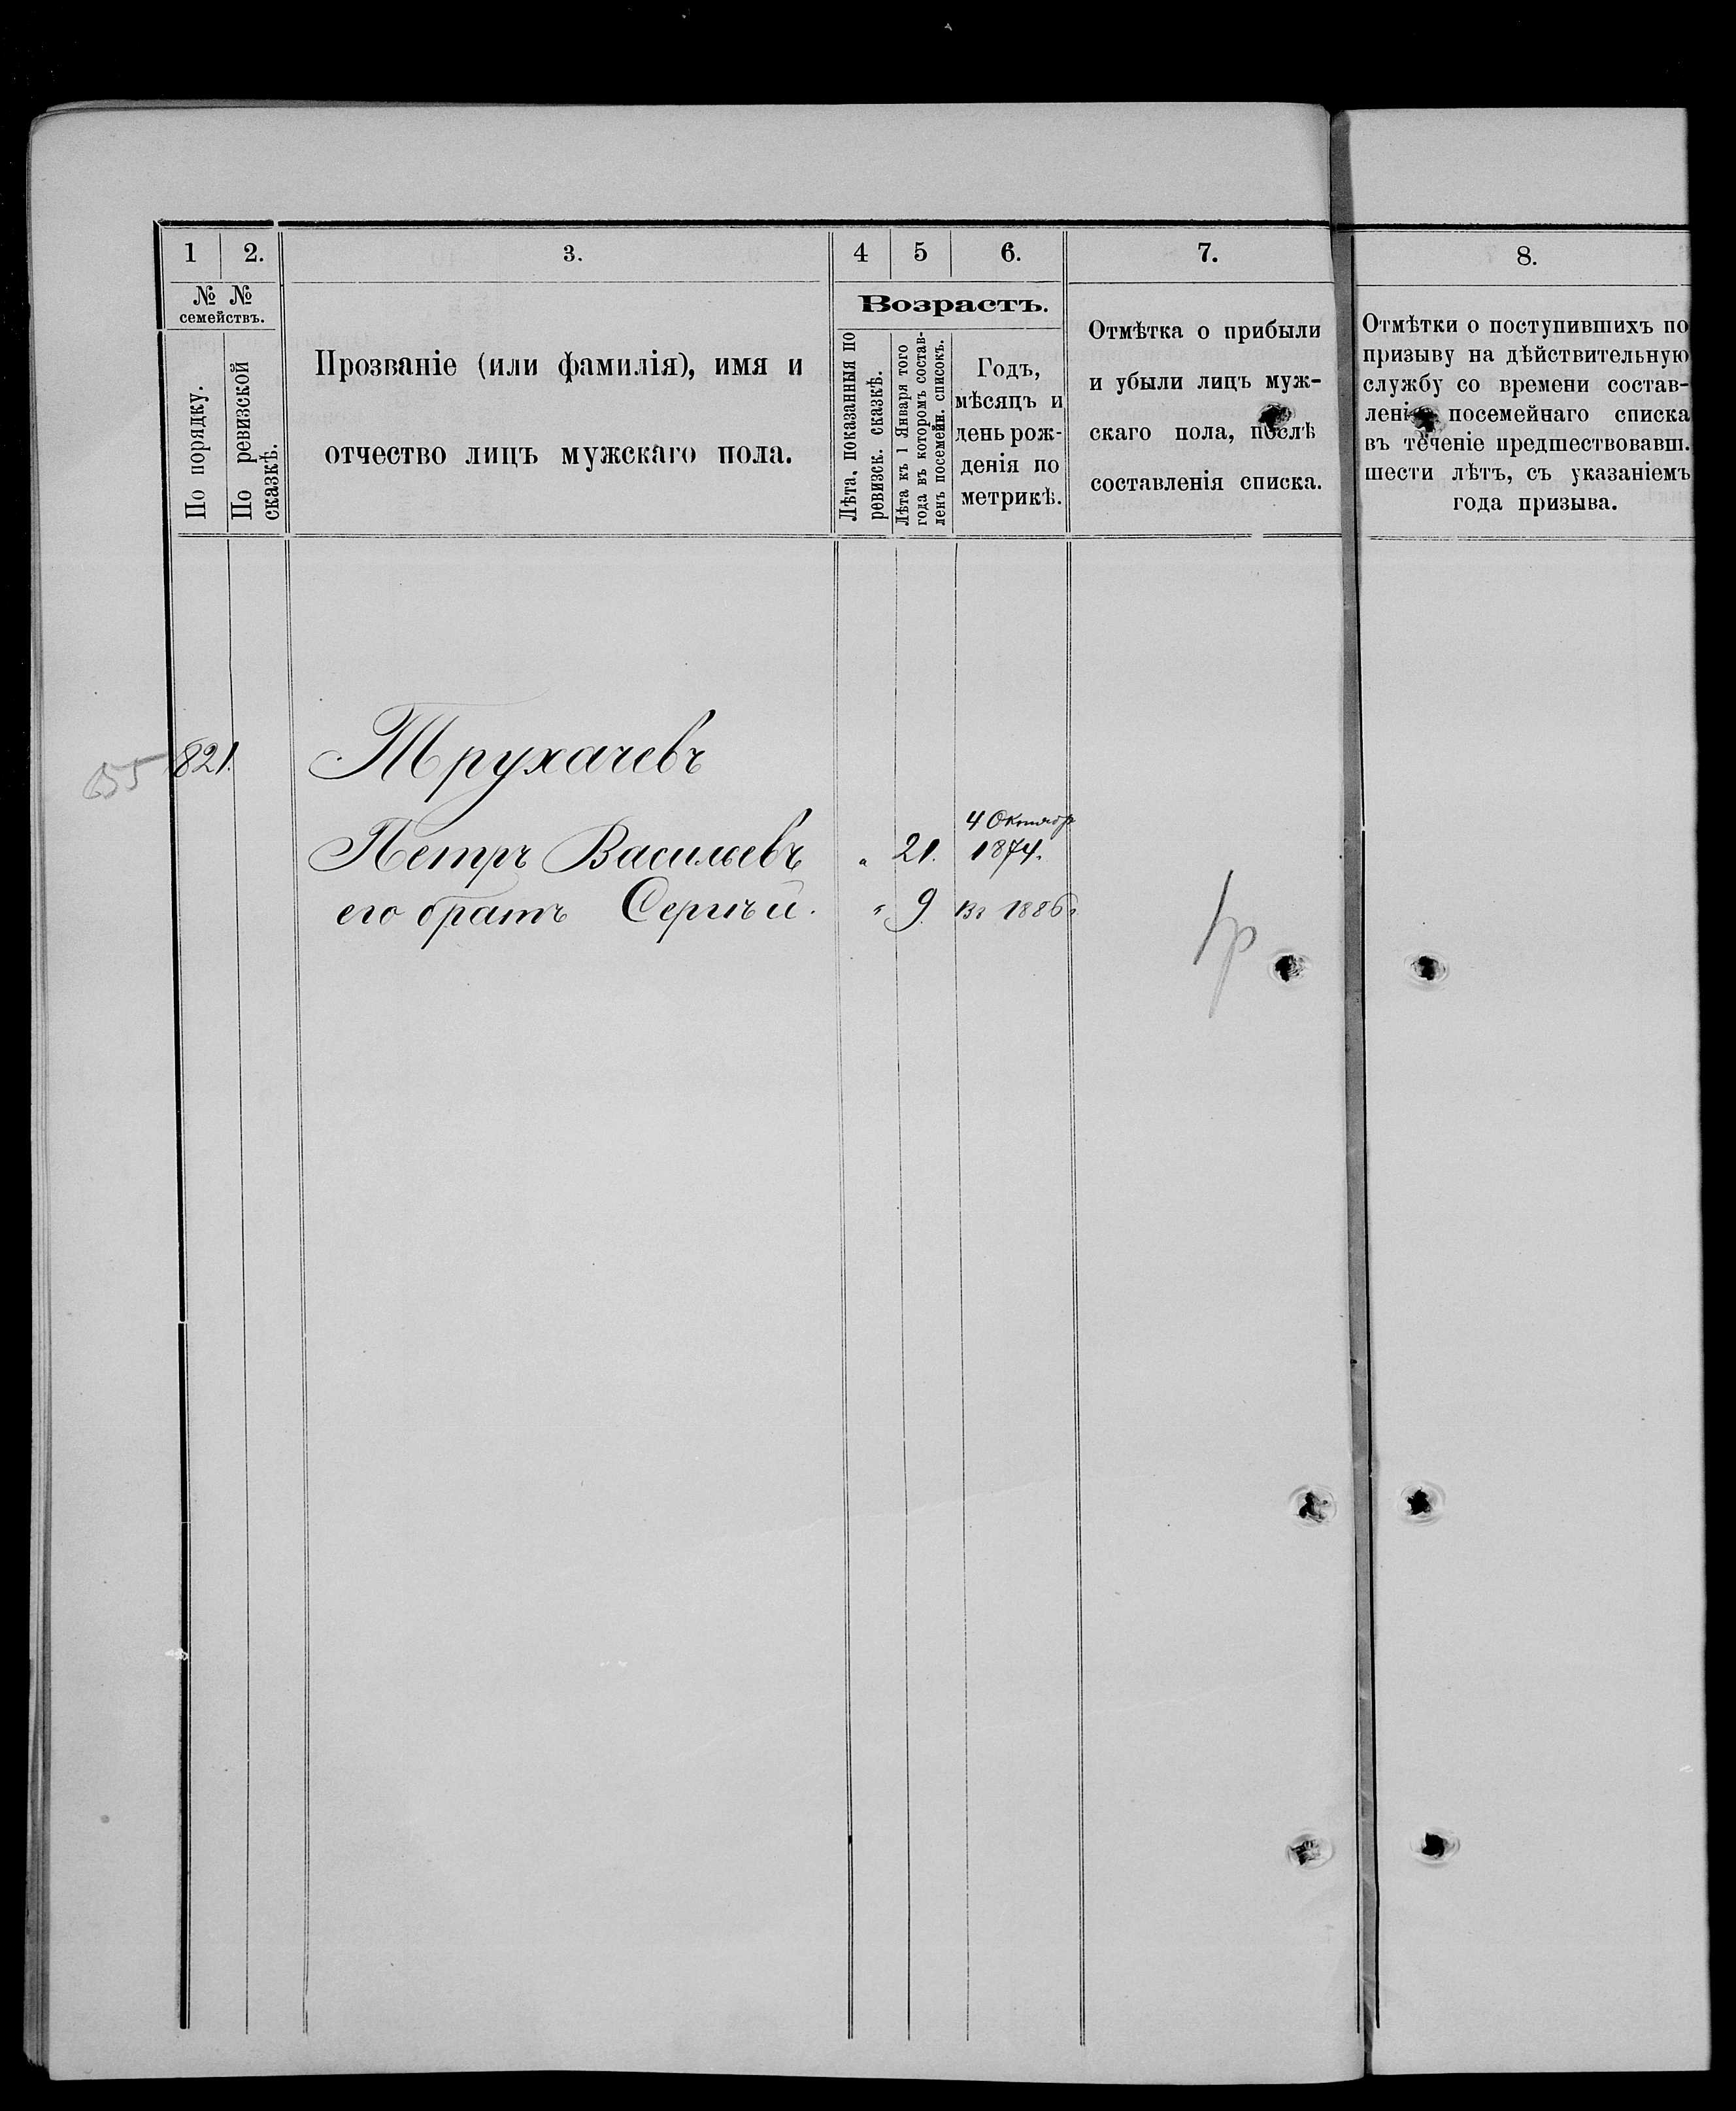 1 2. 3. 4 5 6. 7. 8.
№ № семействъ.
По порядку.
По ревизской сказкѣ.
Прозваніе (или фамилія), имя и
отчество лицъ мужскаго пола.
Возрастъ.
Лѣта, показанныя по
ревизск. сказкѣ.
Лѣта къ 1 Января того
года въ которомъ состав-
ленъ посемейн. списокъ.
Годъ,
мѣсяцъ и
день рож-
денія по
метрикѣ.
Отмѣтка о прибыли
и убыли лицъ муж-
скаго пола, послѣ
составленія списка.
Отмѣтки о поступившихъ по
призыву на дѣйствительную
службу со времени состав-
ленія посемейнаго списка
въ теченіе предшествовавш.
шести лѣтъ, съ указаніемъ
года призыва.
655 821. Трухачевъ
4 Октябр
Петръ Васильевъ " 21. 1874.
его братъ Сергѣй. " 9. Въ 1886г